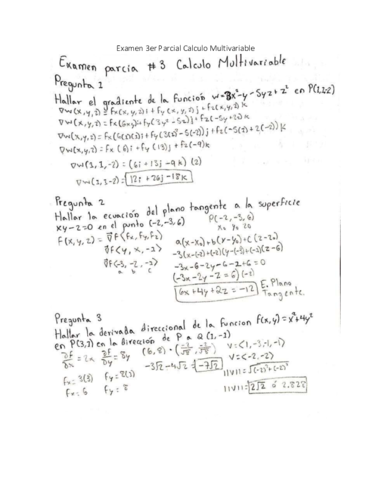 Examen 3er Parcial Calculo Multivariable
Examen parcia #3 Calculo Multivariable
Pregunta 1
Hallar el gradiente de la función w=3x²-y-5yz+z² en P(1,1,-2)
∇w(x,y,z)=fx(x,y,z)i+fy(x,y,z)j+fz(x,y,z)k
∇w(x,y,z)=fx(6xy)i+fy(3y²-5z)j+fz(-5y+2z)k
∇w(x,y,z)=fx(6)i+fy(13)j+fz(-9)k
∇w(1,1,-2)=(6i+13j-9k)(2)
∇w(1,1,-2)=12i+26j-18k
Pregunta 2
Hallar la ecuación del plano tangente a la superficie
xy-z=0 en el punto (-2,-3,6)
P(-2,-3,6)
x₀ y₀ z₀
F(x,y,z)=∇f⟨Fx,Fy,Fz⟩
∇f⟨y,x,-1⟩
∇f⟨-3,-2,-1⟩
a b c
a(x-x₀)+b(y-y₀)+c(z-z₀)
-3x-6-2y-6-z+6=0
(-3x-2y-z=6)(-2)
6x+4y+2z=-12
E. Plano
Tangente.
Pregunta 3
Hallar la derivada direccional de la funcion f(x,y)=x²+4y²
en P(3,1) en la dirección de P a Q(1,-1)
∂f/∂x=2x ∂f/∂y=8y
(6,8)·(-2/√8, -2/√8)
v=⟨1,-3,-1,-1⟩
fx=2(3) fy=8(1)
-3√2-4√2=-7√2
v=⟨-2,-2⟩
fx=6 fy=8
||v||=√(-2)²+(-2)²
||v||=2√2 ó 2.828